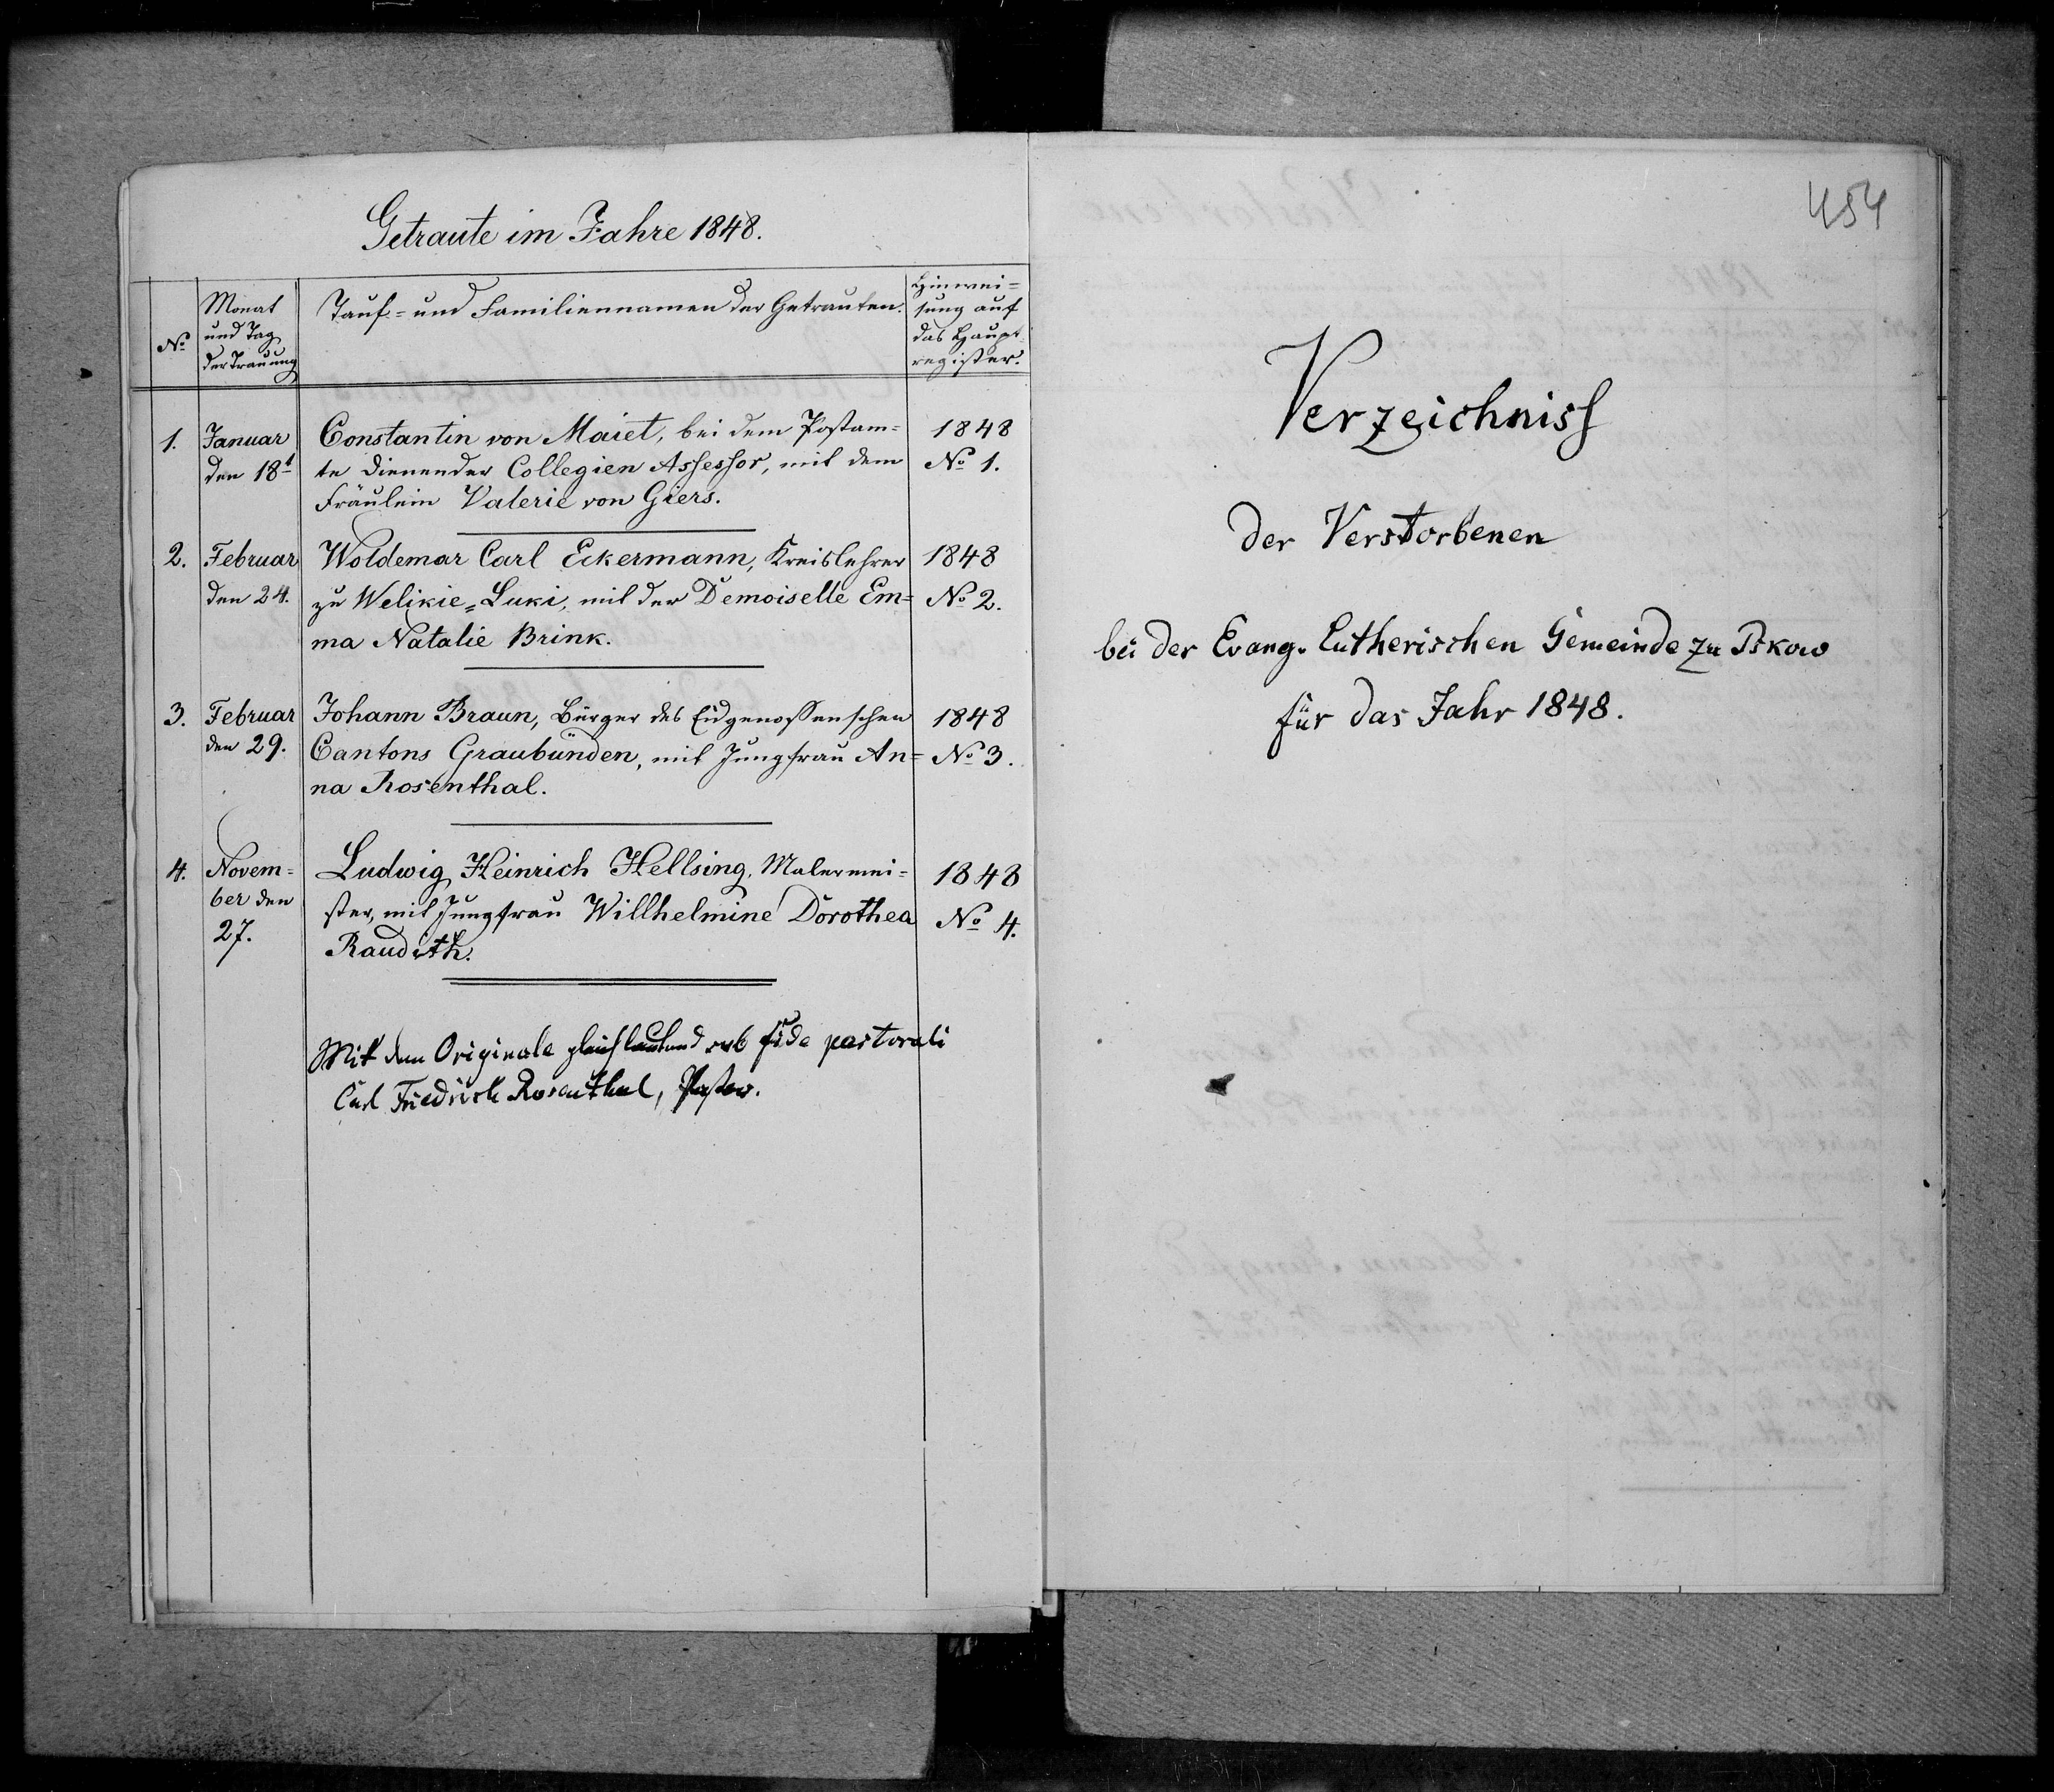 Getraute im Jahre 1848.
No
Monat
und Tag
der Trauung
Tauf- und Familiennamen der Getrauten.
Hinwei=
sung auf
das Haupt
register.
1. Januar Constantin von Maiet, bei dem Postam= 1848
den 18t te dienender Collegien Assessor, mit dem No 1.
Fräulein Valerie von Giers.
2. Februar Woldemar Carl Eckermann, Kreislehrer 1848
den 24. zu Welikie=Luki, mit der Demoiselle Em= No 2.
ma Natalie Brink.
3. Februar Johann Braun, Bürger des Eidgenossenschen 1848
den 29. Cantons Graubünden, mit Jungfrau An= No 3.
na Rosenthal.
4. Novem= Ludwig Heinrich Hellsing, Malermei= 1848
ber den ster, mit Jungfrau Willhelmine Dorothea No 4.
27.
Mit dem Originale gleichlautend sub fide pastorali
Carl Friedrich Rosenthal, Pastor.
454
Verzeichniss
der Verstorbenen
bei der Evang. Lutherischen Gemeinde zu Pskow
für das Jahr 1848.